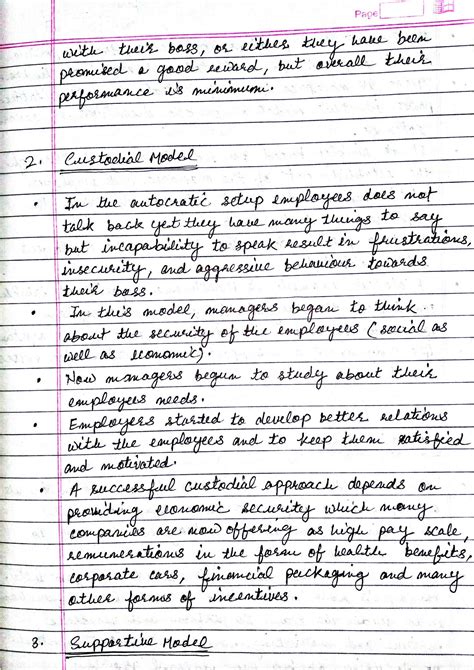 Page
with their boss, or either they have been
promised a good reward, but overall their
performance is minimum.
2. Custodial Model
• In the autocratic setup employees does not
talk back yet they have many things to say
but incapability to speak result in frustrations,
insecurity, and aggressive behaviour towards
their boss.
• In this model, managers began to think
about the security of the employees (social as
well as economic).
• Now managers begun to study about their
employees needs.
• Employers started to develop better relations
with the employees and to keep them satisfied
and motivated.
• A successful custodial approach depends on
providing economic security which many
companies are now offering as high pay scale,
remunerations in the form of health benefits,
corporate cars, financial packaging and many
other forms of incentives.
3. Supportive Model